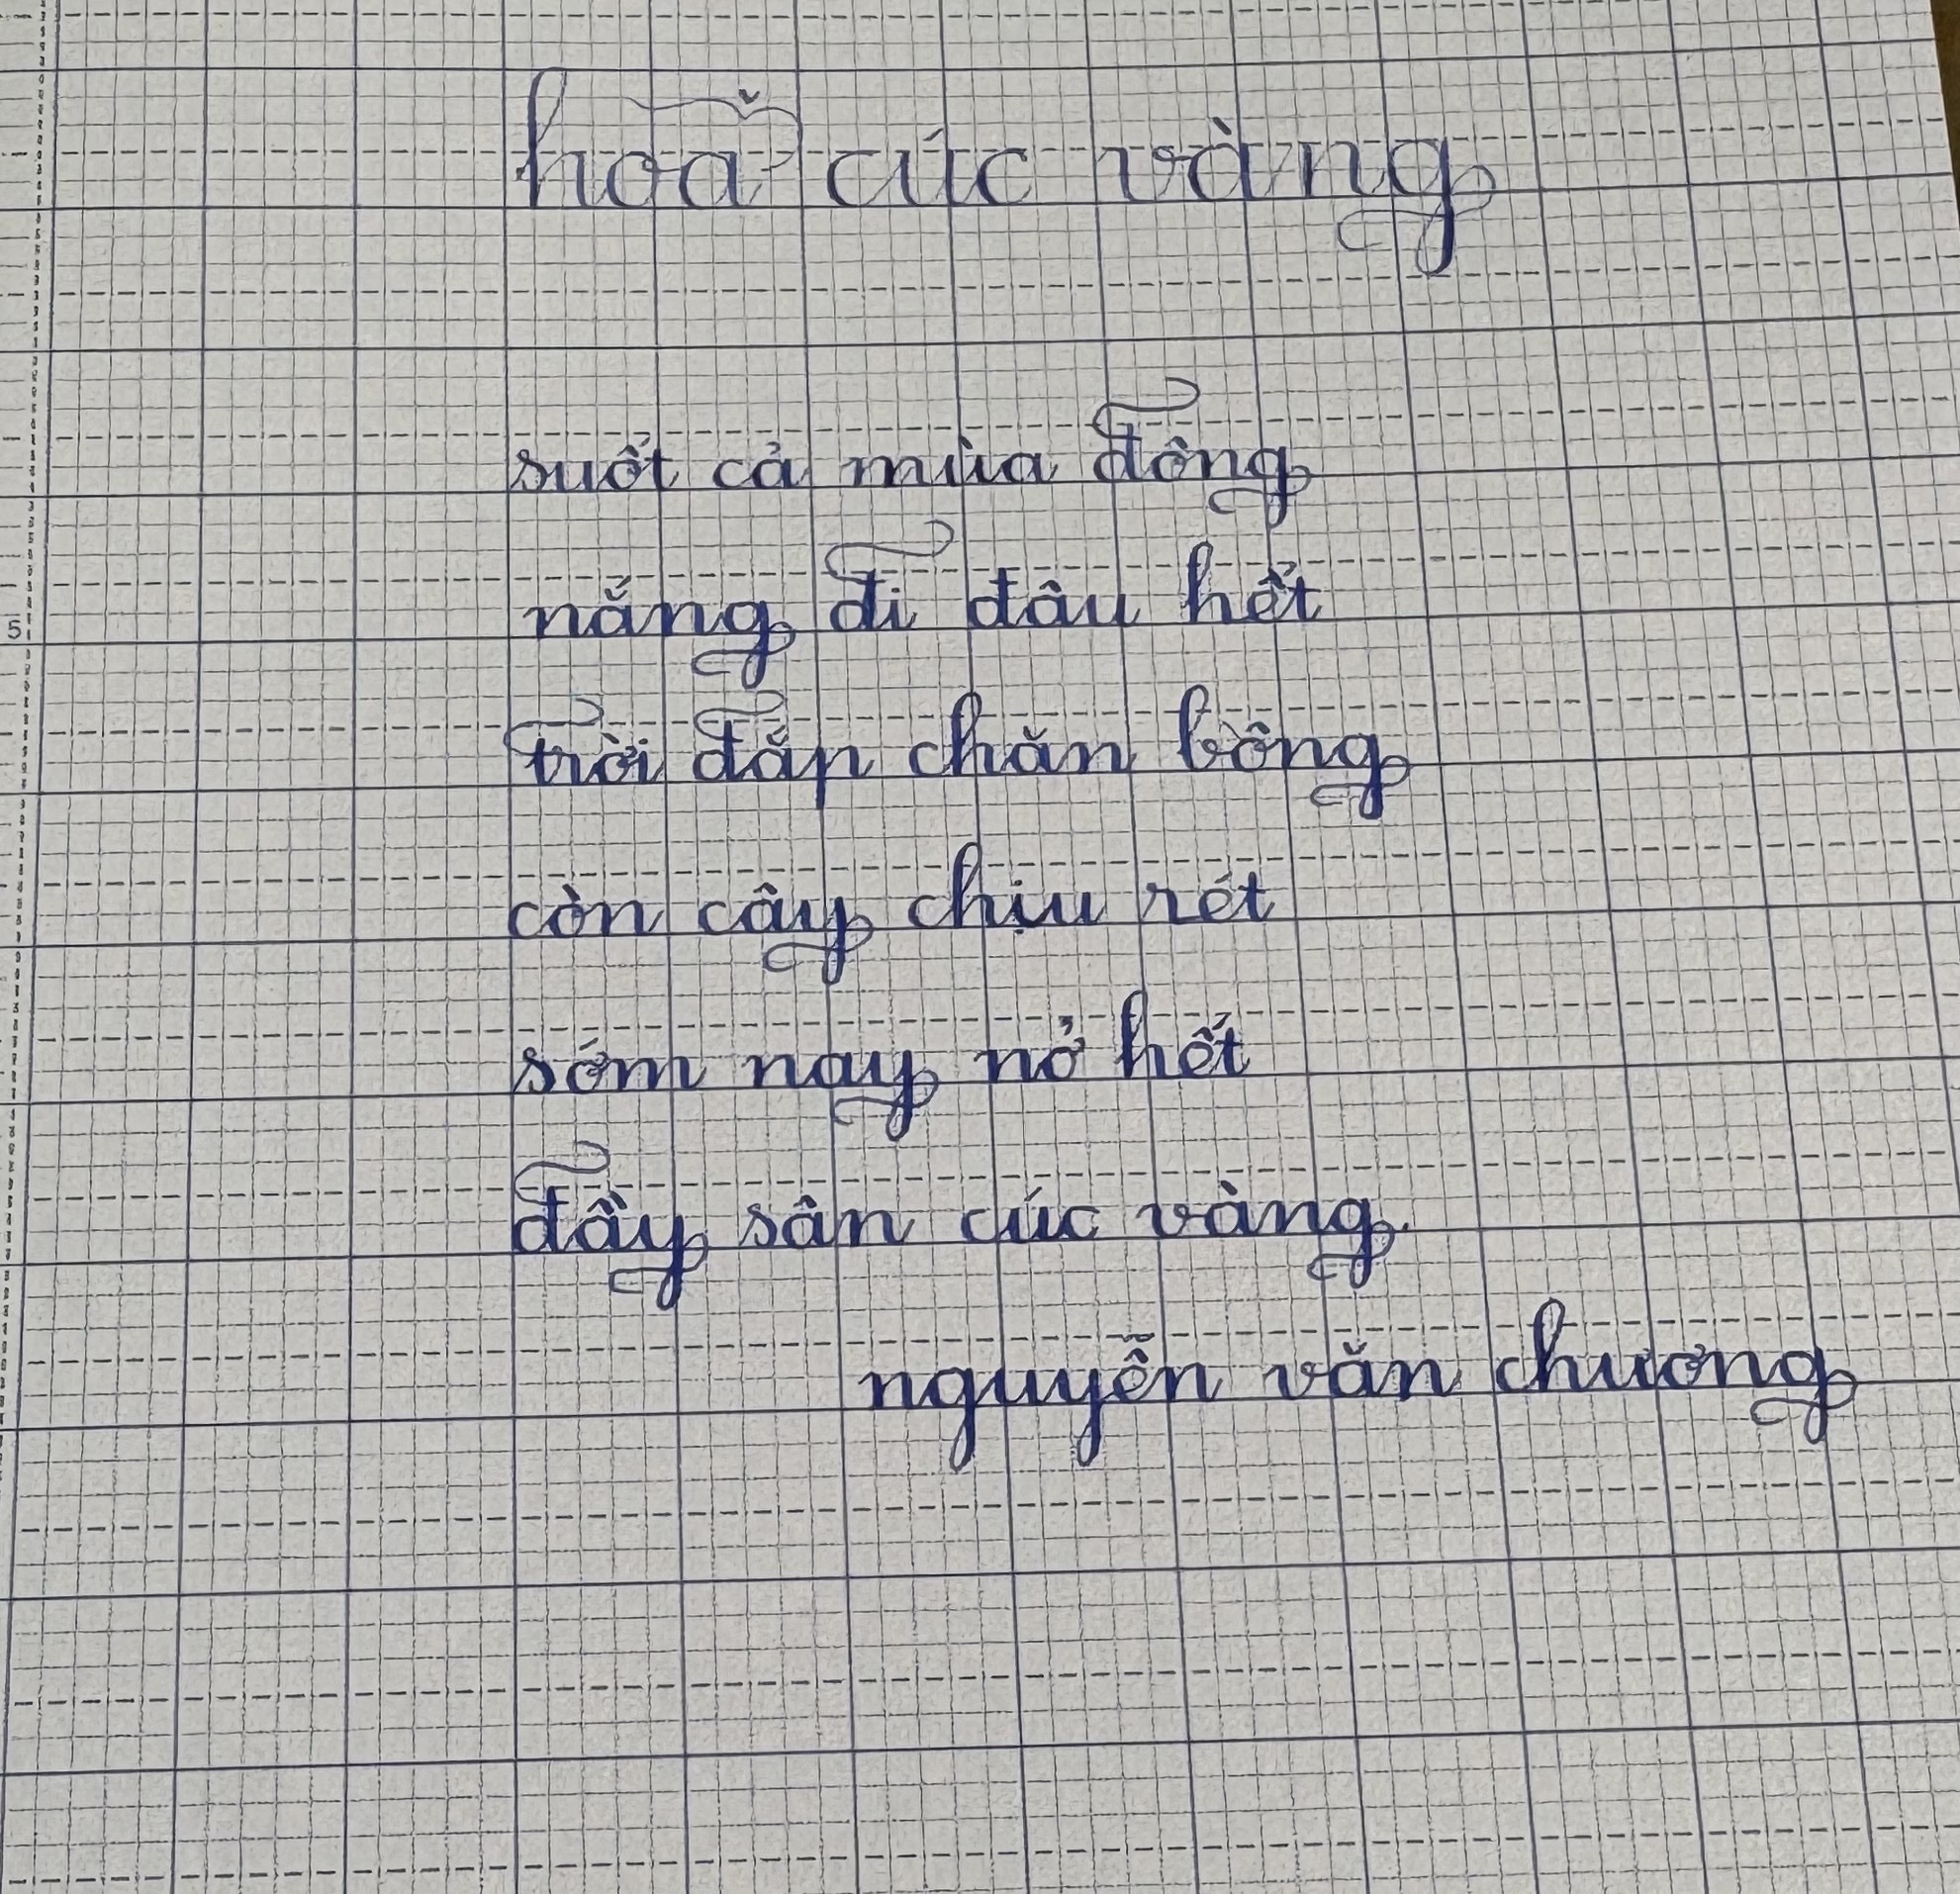 hoa cúc vàng
suốt cả mùa đông
nắng đi đâu hết
trời đắp chăn bông
còn cây chịu rét
sớm nay nở hết
đầy sân cúc vàng
nguyễn văn chương
5